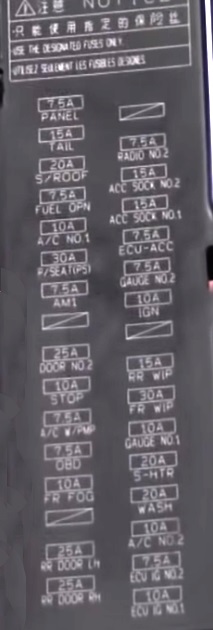 ⚠注意 NOTICE
·只能使用指定的保险丝
USE THE DESIGNATED FUSES ONLY.
UTILISEZ SEULEMENT LES FUSIBLES DESIGNES.
7.5A
PANEL
15A
TAIL
20A
S/ROOF
7.5A
FUEL OPN
10A
A/C NO.1
30A
P/SEAT(PS)
7.5A
AM1
25A
DOOR NO.2
10A
STOP
7.5A
A/C W/PMP
7.5A
OBD
10A
FR FOG
25A
RR DOOR LH
25A
RR DOOR RH
7.5A
RADIO NO.2
15A
ACC SOCK NO.2
15A
ACC SOCK NO.1
7.5A
ECU-ACC
7.5A
GAUGE NO.2
10A
IGN
15A
RR WIP
30A
FR WIP
10A
GAUGE NO.1
20A
S-HTR
20A
WASH
10A
A/C NO.2
7.5A
ECU IG NO.2
10A
ECU IG NO.1